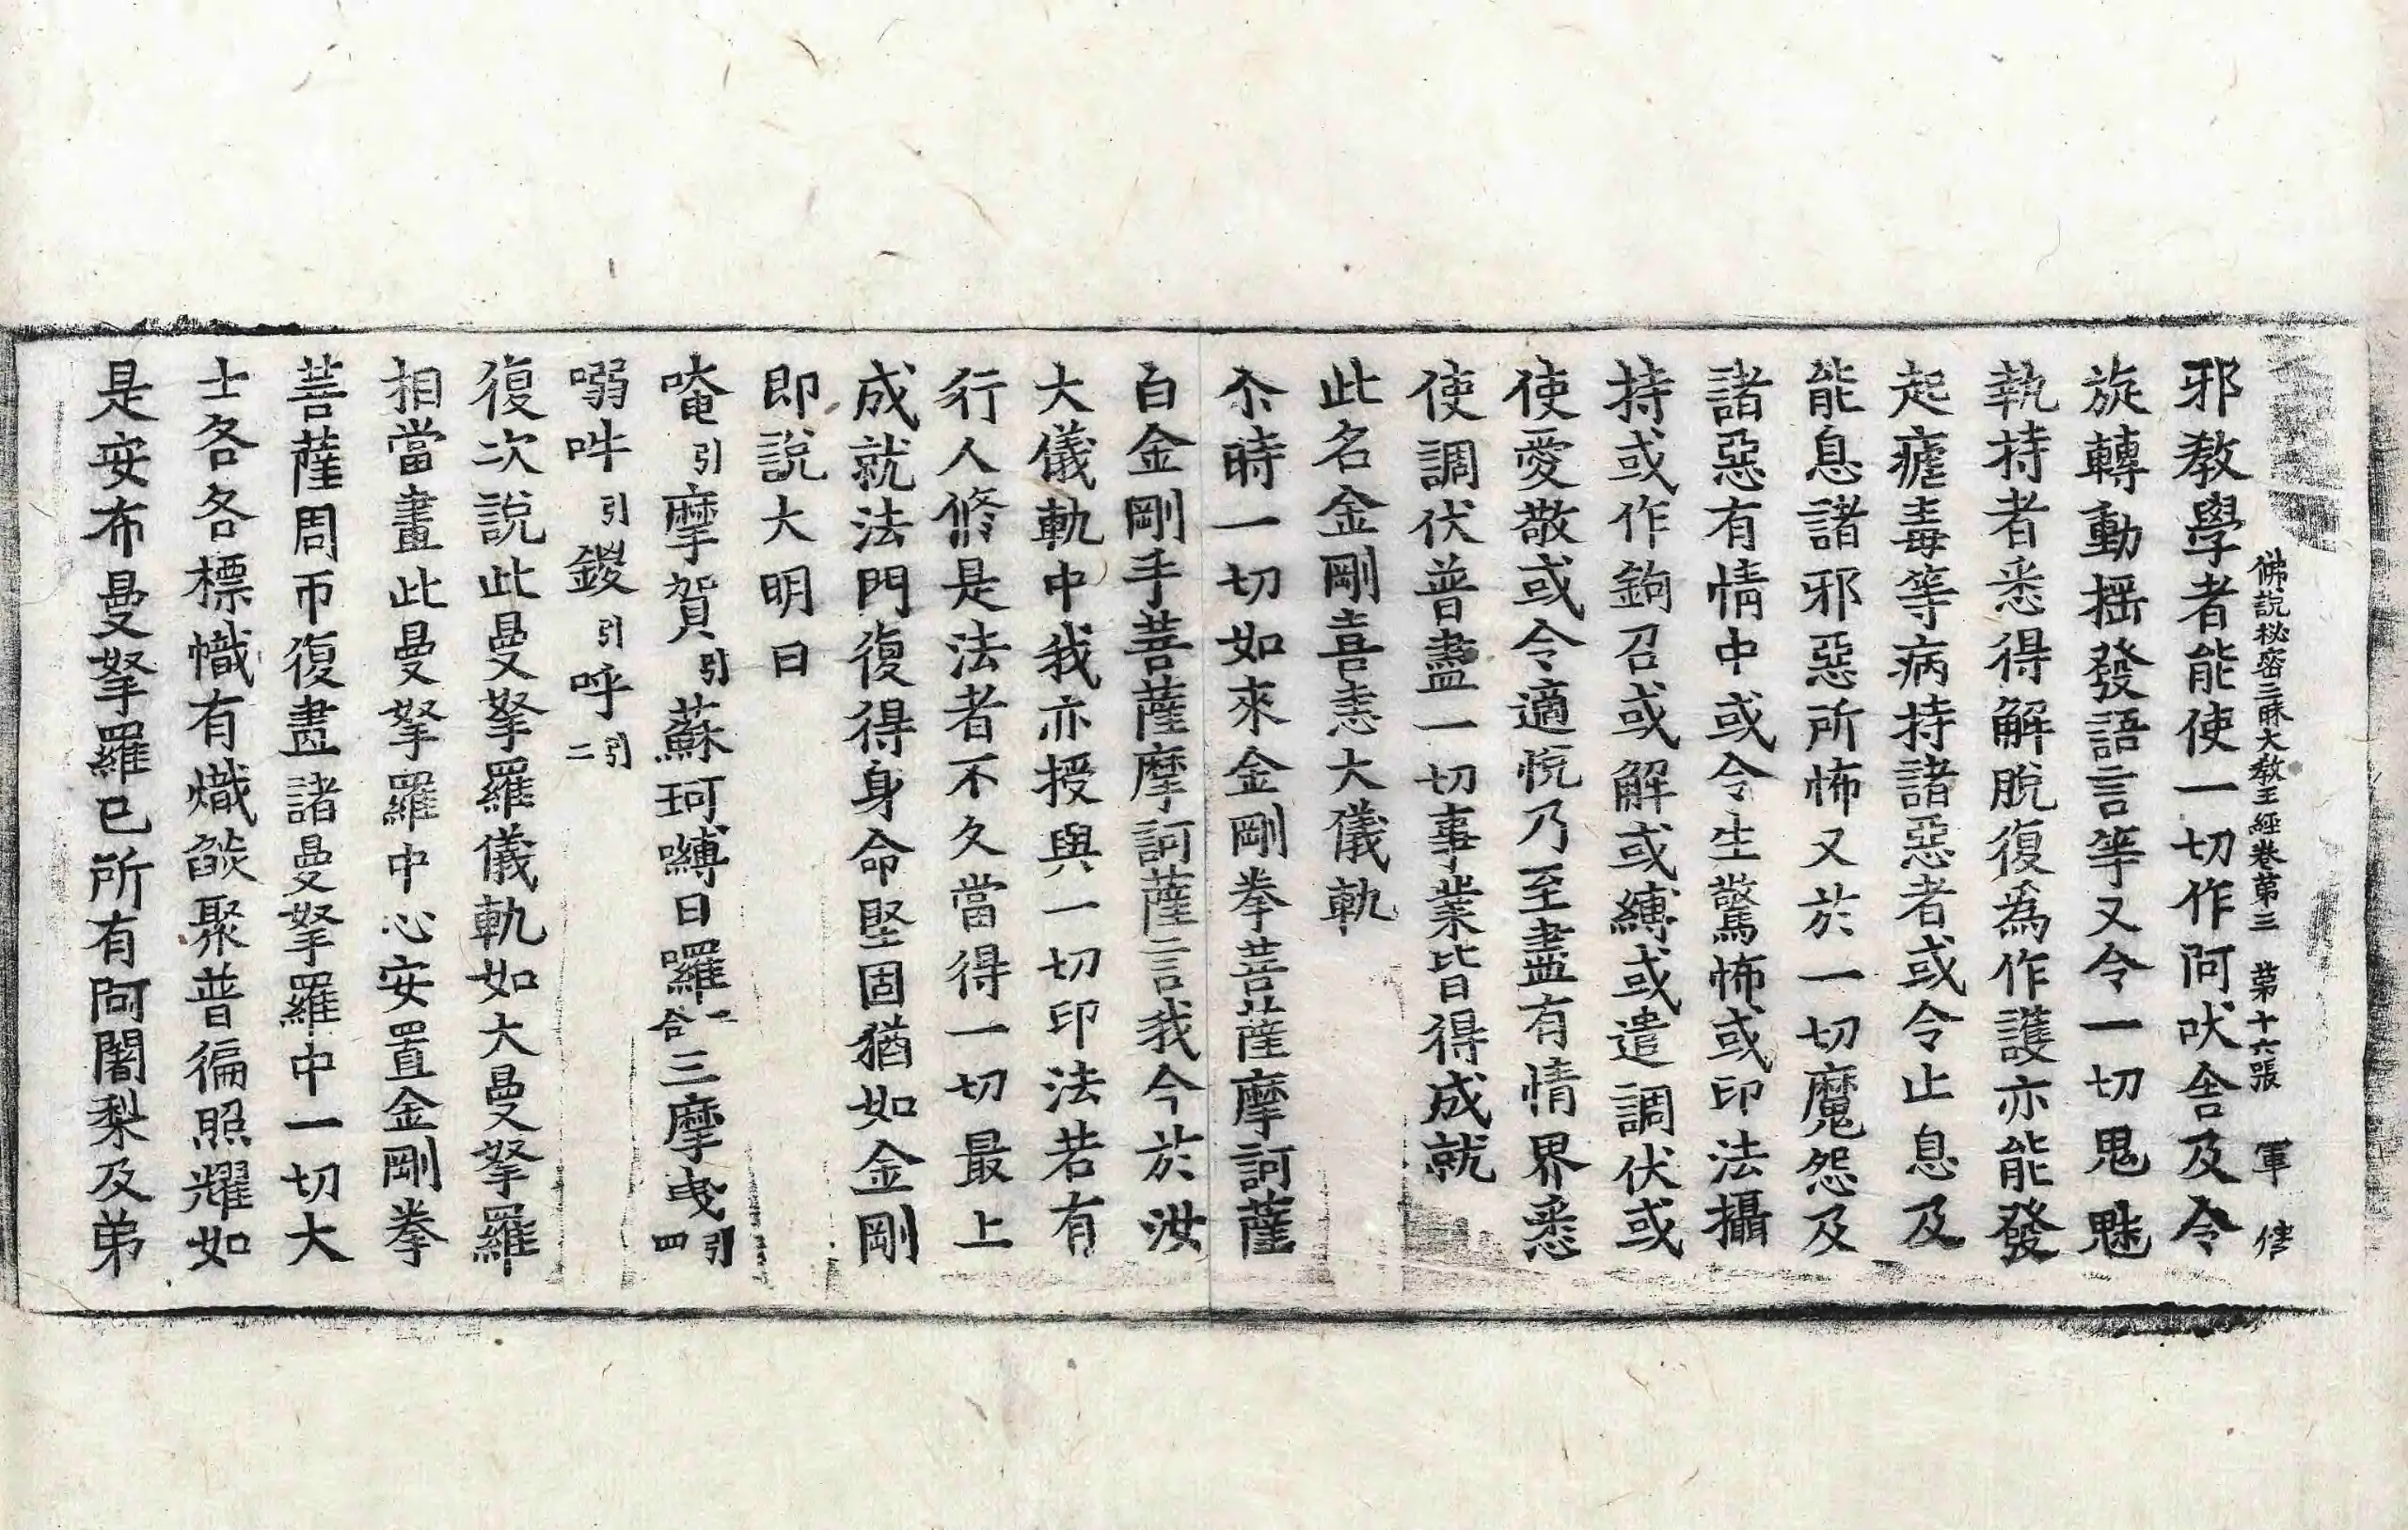 佛說秘密三昧大教王經卷第三 第十六張 軍
邪教學者能使一切作阿吠舍及令
旋轉動揺發語言等又令一切鬼魅
執持者悉得解脫復爲作護亦能發
起瘧毒等病持諸惡者或令止息及
能息諸邪惡所怖又於一切魔怨及
諸惡有情中或令生驚怖或印法攝
持或作鉤召或解或縛或遣調伏或
使愛敬或令適悅乃至盡有情界悉
使調伏普盡一切事業皆得成就
此名金剛喜恚大儀軌
尒時一切如來金剛拳菩薩摩訶薩
白金剛手菩薩摩訶薩言我今於汝
大儀軌中我亦授與一切印法若有
行人修是法者不久當得一切最上
成就法門復得身命堅固猶如金剛
即說大明曰
唵引摩賀引蘇珂嚩日囉二合三摩曳引四
嗢吽引鑁引呼引二
復次說此曼拏羅儀軌如大曼拏羅
相當畫此曼拏羅中心安置金剛拳
菩薩周帀復畫諸曼拏羅中一切大
士各各標幟有熾燄聚普徧照耀如
是安布曼拏羅已所有阿闍梨及弟